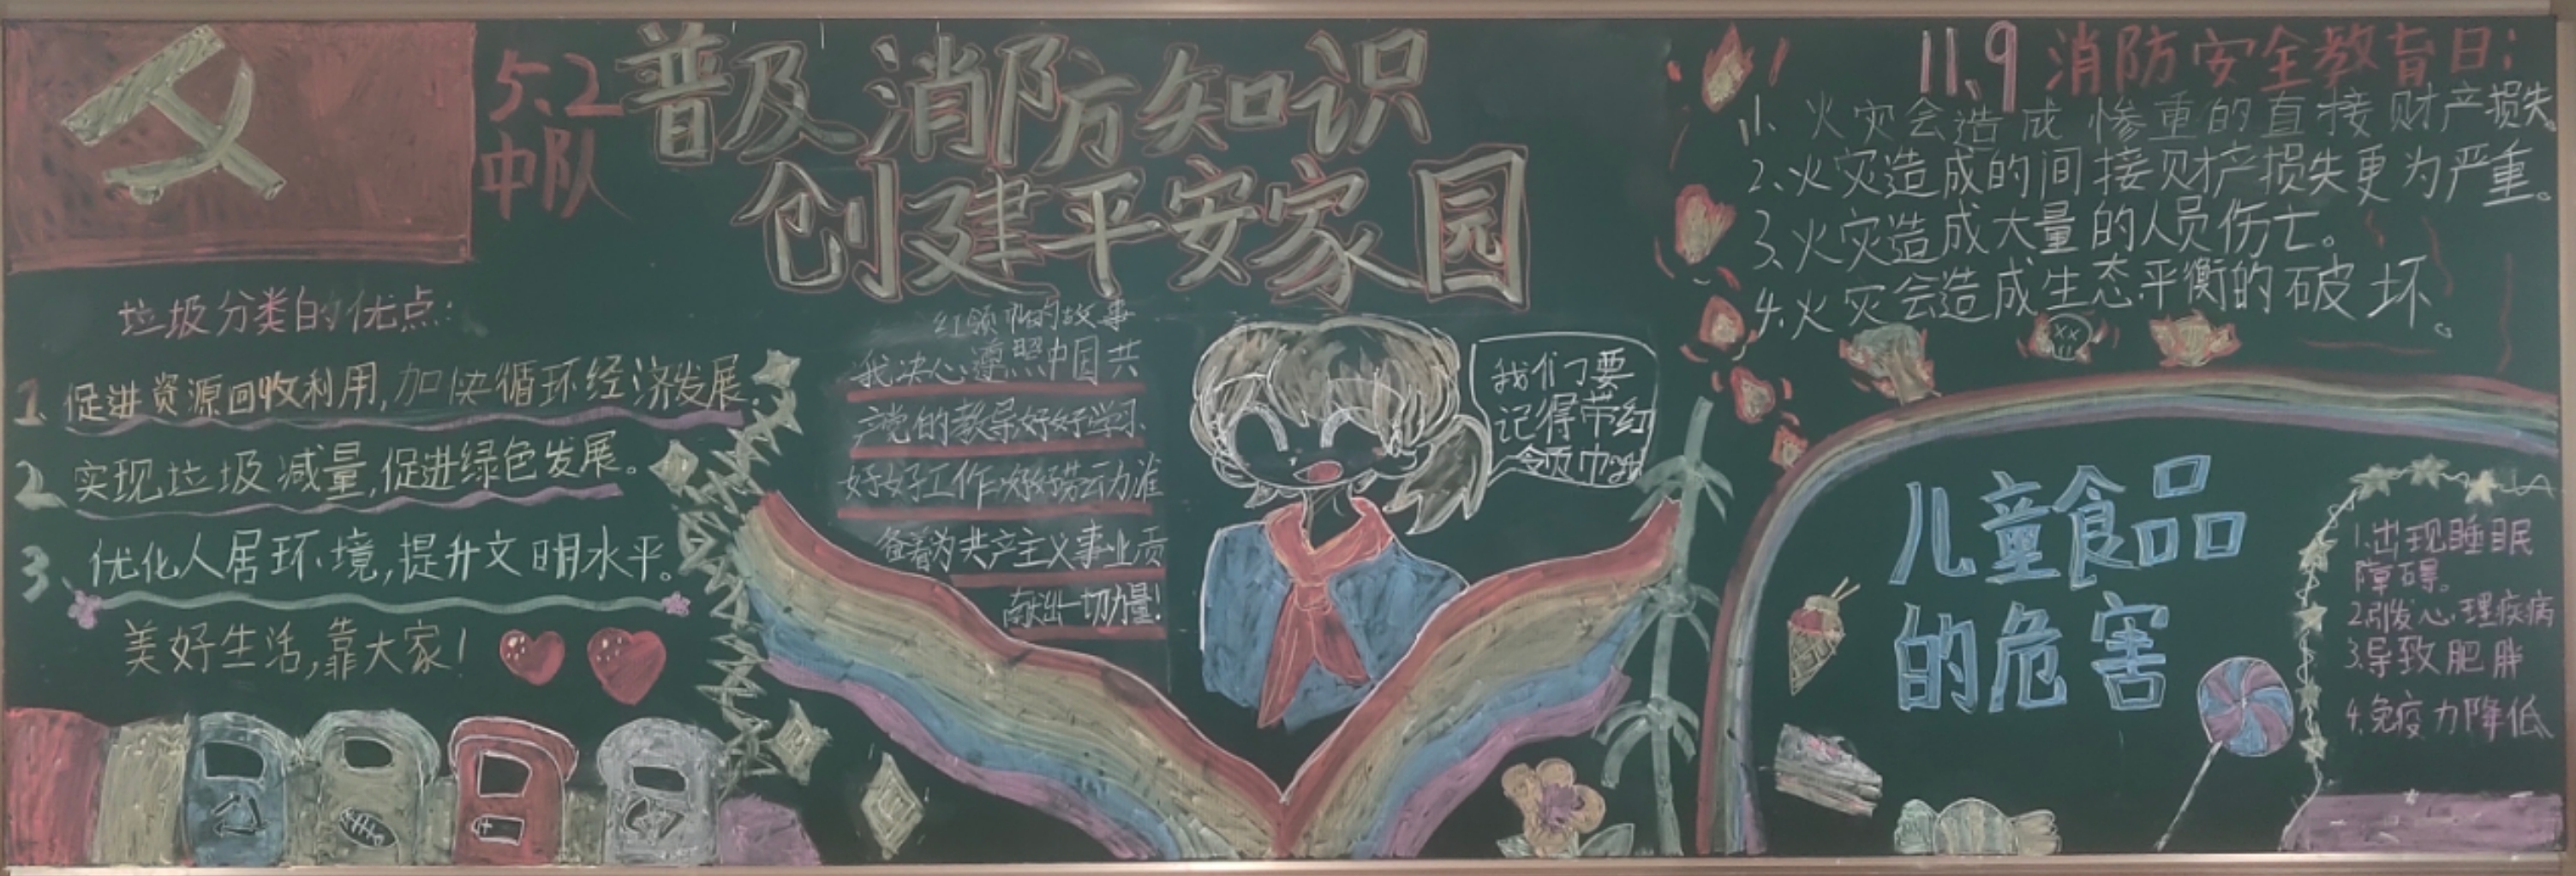 5、2
中队
普及消防知识
创建平安家园
垃圾分类的优点：
1、促进资源回收利用,加快循环经济发展。
2、实现垃圾减量,促进绿色发展。
3、优化人居环境,提升文明水平。
美好生活,靠大家！
红领巾的故事
我决心遵照中国共
产党的教导好好学习
好好工作好好劳动准
备着为共产主义事业贡
献出一切力量！
我们要
记得带红
领巾哦
11、9 消防安全教育日：
1、火灾会造成惨重的直接财产损失。
2、火灾造成的间接财产损失更为严重。
3、火灾造成大量的人员伤亡。
4、火灾会造成生态平衡的破坏。
儿童食品
的危害
1.出现睡眠
障碍。
2.引发心理疾病
3.导致肥胖
4.免疫力降低